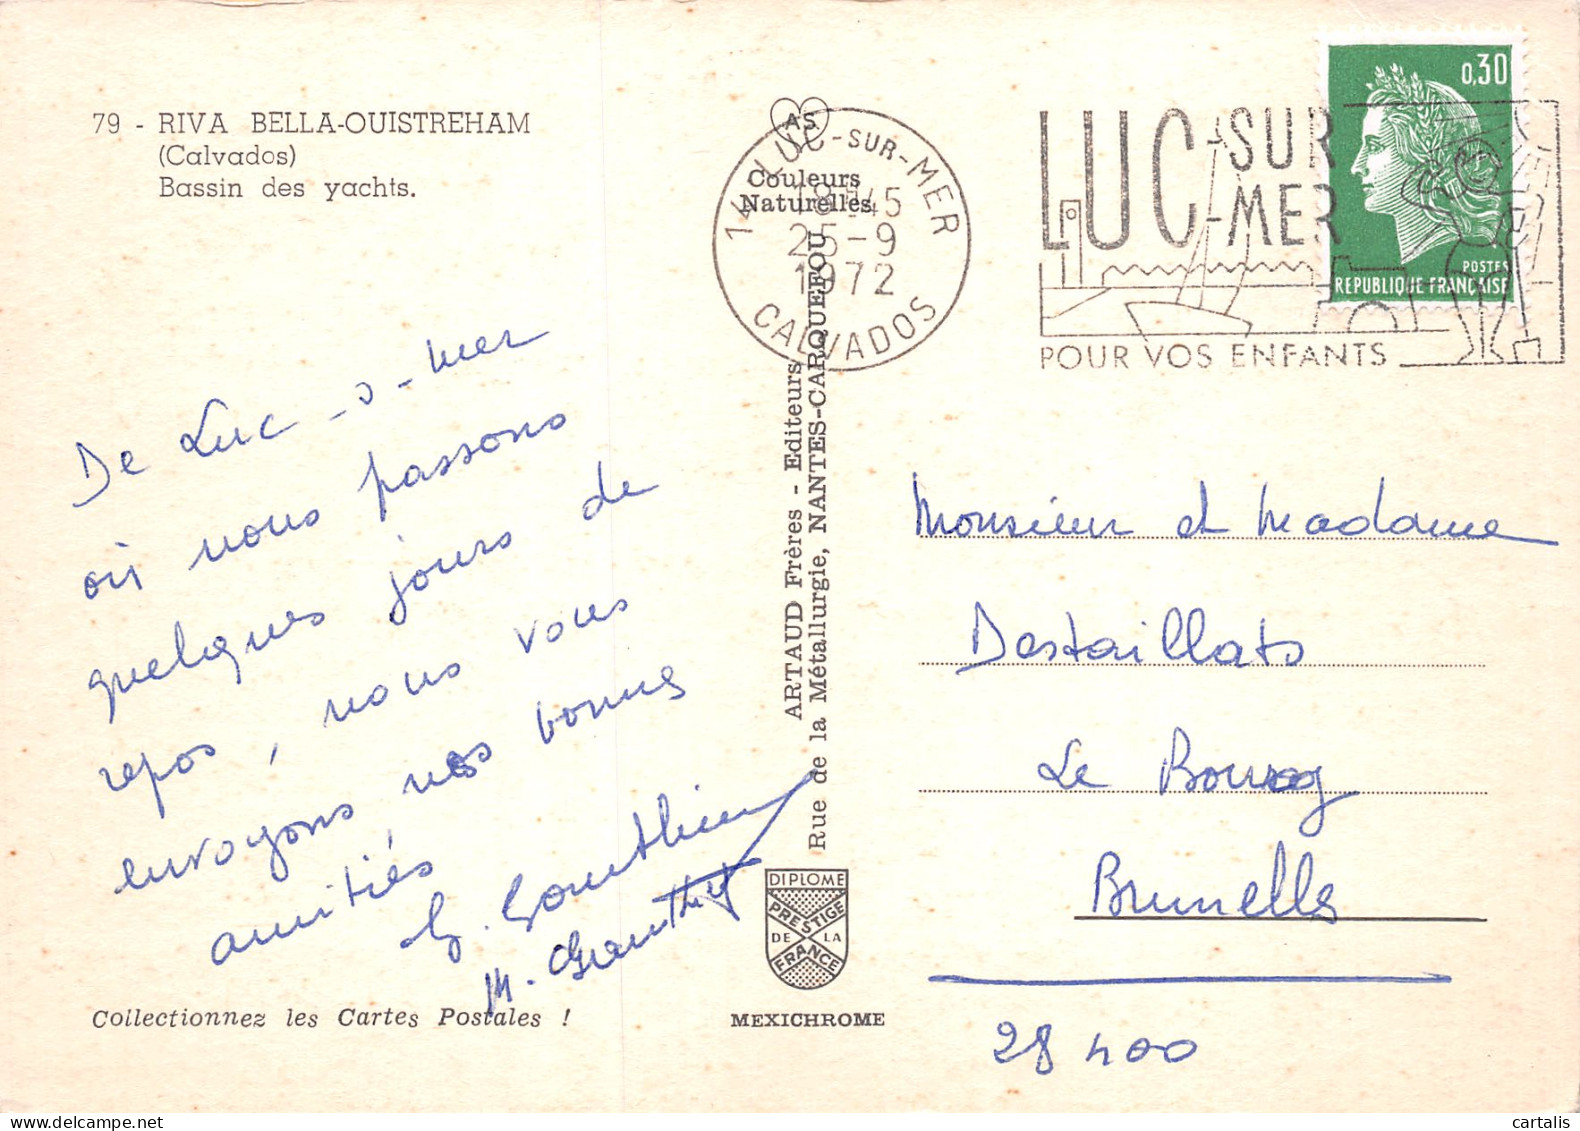 79 - RIVA BELLA-OUISTREHAM
(Calvados)
Bassin des yachts.
De Luc-s-mer
où nous passons
quelques jours de
repos, nous vous
envoyons nos bonnes
amitiés
G. Gauthier
M. Gauthier
Collectionnez les Cartes Postales !
AS
Couleurs
Naturelles
14 LUC-SUR-MER
18H45
25-9
1972
CALVADOS
ARTAUD Frères - Editeurs
Rue de la Métallurgie, NANTES-CARQUEFOU
DIPLOME
PRESTIGE
DE LA
FRANCE
MEXICHROME
LUC-SUR
-MER
POUR VOS ENFANTS
0,30
POSTES
REPUBLIQUE FRANÇAISE
Monsieur et Madame
Destaillats
Le Bourg
Brunelles
28400
cartalis